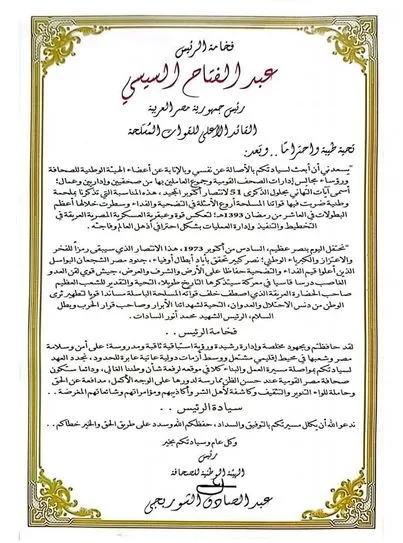 فخامة الرئيس
عبد الفتاح السيسي
رئيس جمهورية مصر العربية
القائد الأعلى للقوات المسلحة
تحية طيبة واحتراما.. وبعد:
"يسعدني أن أبعث لسيادتكم بالأصالة عن نفسي وبالإنابة عن أعضاء الهيئة الوطنية للصحافة
ورؤساء مجالس إدارات الصحف القومية وجموع العاملين بها من صحفيين وإداريين وعمال؛
أسمى آيات التهاني بحلول الذكرى 51 لانتصار أكتوبر المجيد، هذه المناسبة التي تذكرنا بملحمة
وطنية ضربت فيها قواتنا المسلحة أروع الأمثلة في التضحية والفداء وسطرت خلالها أعظم
البطولات في العاشر من رمضان 1393هـ؛ لتعكس قوة وعبقرية العسكرية المصرية العريقة في
التخطيط والتنفيذ وإدارة العمليات بشكل احترافي أذهل العالم وفاجئه.
"نحتفل اليوم بنصر عظيم، السادس من أكتوبر 1973، هذا الانتصار الذي سيبقى رمزا للفخر
والاعتزاز والكبرياء الوطني؛ نصر كبير تحقق بأياد أبطال أوفياء، جنود مصر الشجعان البواسل
الذين أعلوا قيم الفداء والتضحية حفاظا على الأرض والشرف والعرض، جيش قوي لقن العدو
الغاصب درسا قاسيا في معركة سيتذكرها التاريخ طويلا، التحية والتقدير للشعب العظيم
صاحب الحضارة العريقة الذي اصطف خلف قواته المسلحة الباسلة مساندا قويا لتطهير ثرى
الوطن من دنس الاحتلال والعدوان، التحية لشهدائنا الأبرار وصاحب قرار الحرب وبطل
السلام، الرئيس الشهيد محمد أنور السادات.
فخامة الرئيس ..
لقد حافظتم وبجهود مخلصة وإدارة رشيدة ورؤية استباقية ثاقبة ومدروسة؛ على أمن وسلامة
مصر وشعبها في محيط إقليمي مشتعل ووسط أزمات دولية عاتية عابرة للحدود، نجدد العهد
لسيادتكم بمواصلة مسيرة العمل والبناء كلا في موقعه لرفعة شأن وطننا الغالي، ودائما ستكون
صحافة مصر القومية عند حسن الظن ممارسة لدورها على الوجه الأكمل، مدافعة عن الحق
وحاملة للواء التنوير والتثقيف وكاشفة لأهل الشر وأكاذيبهم ومؤامراتهم وشائعاتهم المغرضة ..
سيادة الرئيس ..
ندعو الله أن يكلل مسيرتكم بالتوفيق والسداد، حفظكم الله وسدد على طريق الحق والخير خطاكم..
وكل عام وسيادتكم بخير
رئيس
الهيئة الوطنية للصحافة
عبد الصادق الشوربجي